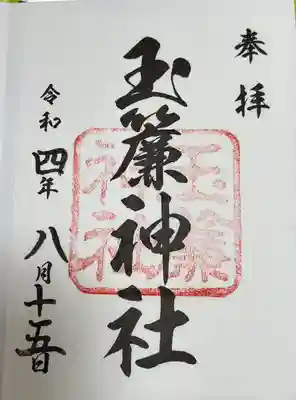 奉拝
玉簾神社
玉簾
神社
令和四年八月十五日